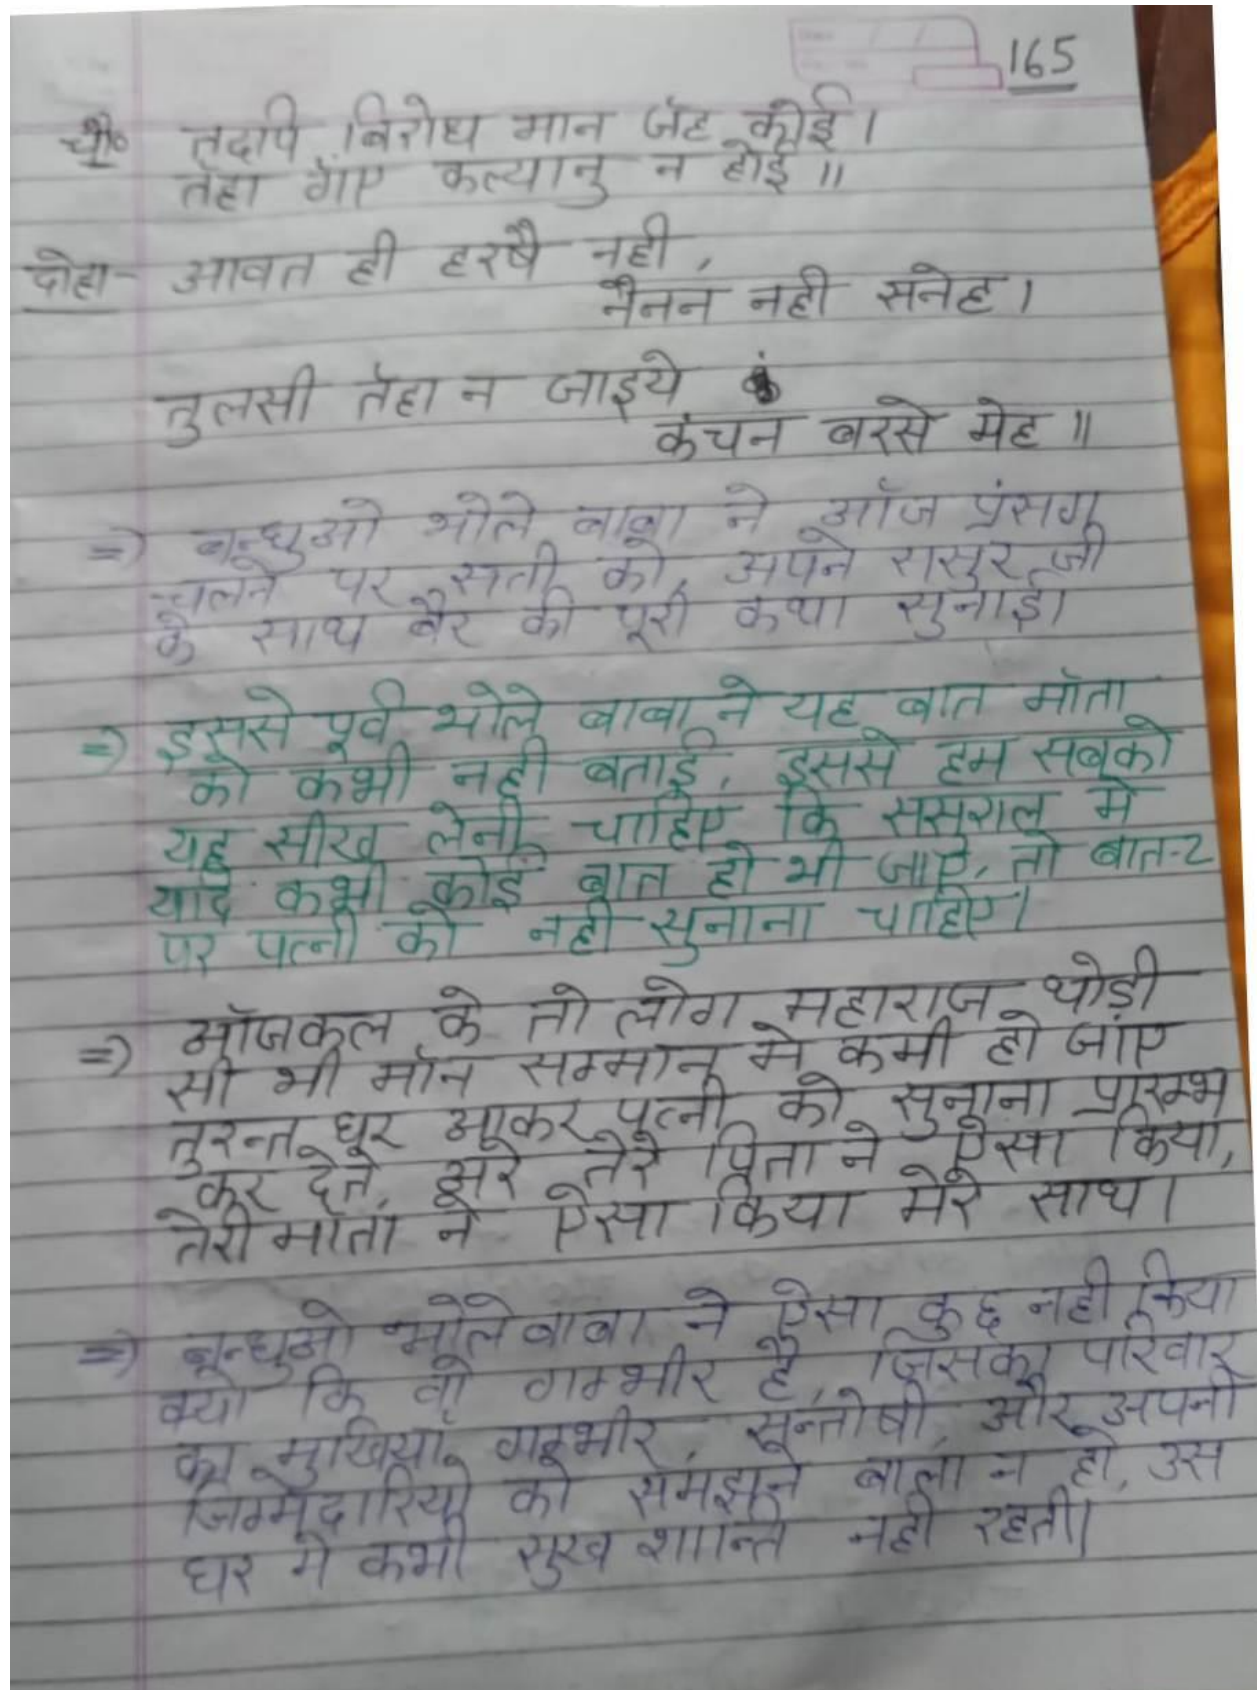 165
चौ० तदपि बिरोध मान जँह कोई।
तहा गॅए कल्यानु न होई॥
दोहा- आवत ही हरषै नही,
नैनन नही सनेह।
तुलसी तॅहा न जाइये
कंचन बरसे मेह॥
=) बन्धुओ भोले बाबा ने ऑज प्रंसग
चलने पर सती को, अपने ससुर जी
के साथ बैर की पूरी कथा सुनाई।
=) इससे पूर्व भोले बाबा ने यह बात मॉता
को कभी नही बताई, इससे हम सबको
यह सीख लेनी चाहिए कि ससुराल मे
यदि कभी कोई बात हो भी जाऐ, तो बात-2
पर पत्नी को नही सुनाना चाहिए।
=) ऑजकल के तो लोग महाराज थोड़ी
सी भी मॉन सम्मान मे कमी हो जॉए
तुरन्त घर आकर पत्नी को सुनाना प्रारम्भ
कर देते, अरे तेरे पिता ने ऐसा किया,
तेरी माता ने ऐसा किया मेरे साथ।
=) बन्धुओ भोले बाबा ने ऐसा कुछ नही किया
क्यो कि वो गम्भीर है, जिसका परिवार
का मुखियाँ गम्भीर, सन्तोषी, और अपनी
जिम्मेदारियो को समझने बाला न हो, उस
घर मे कभी सुख शान्ति नही रहती।